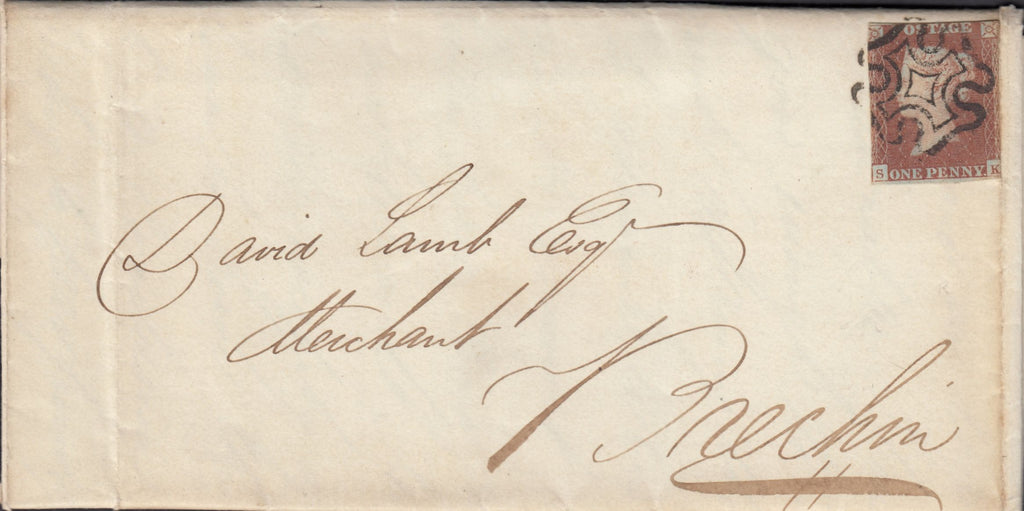 POSTAGE
S ONE PENNY. K
David Lamb Esqr
Merchant
Brechin